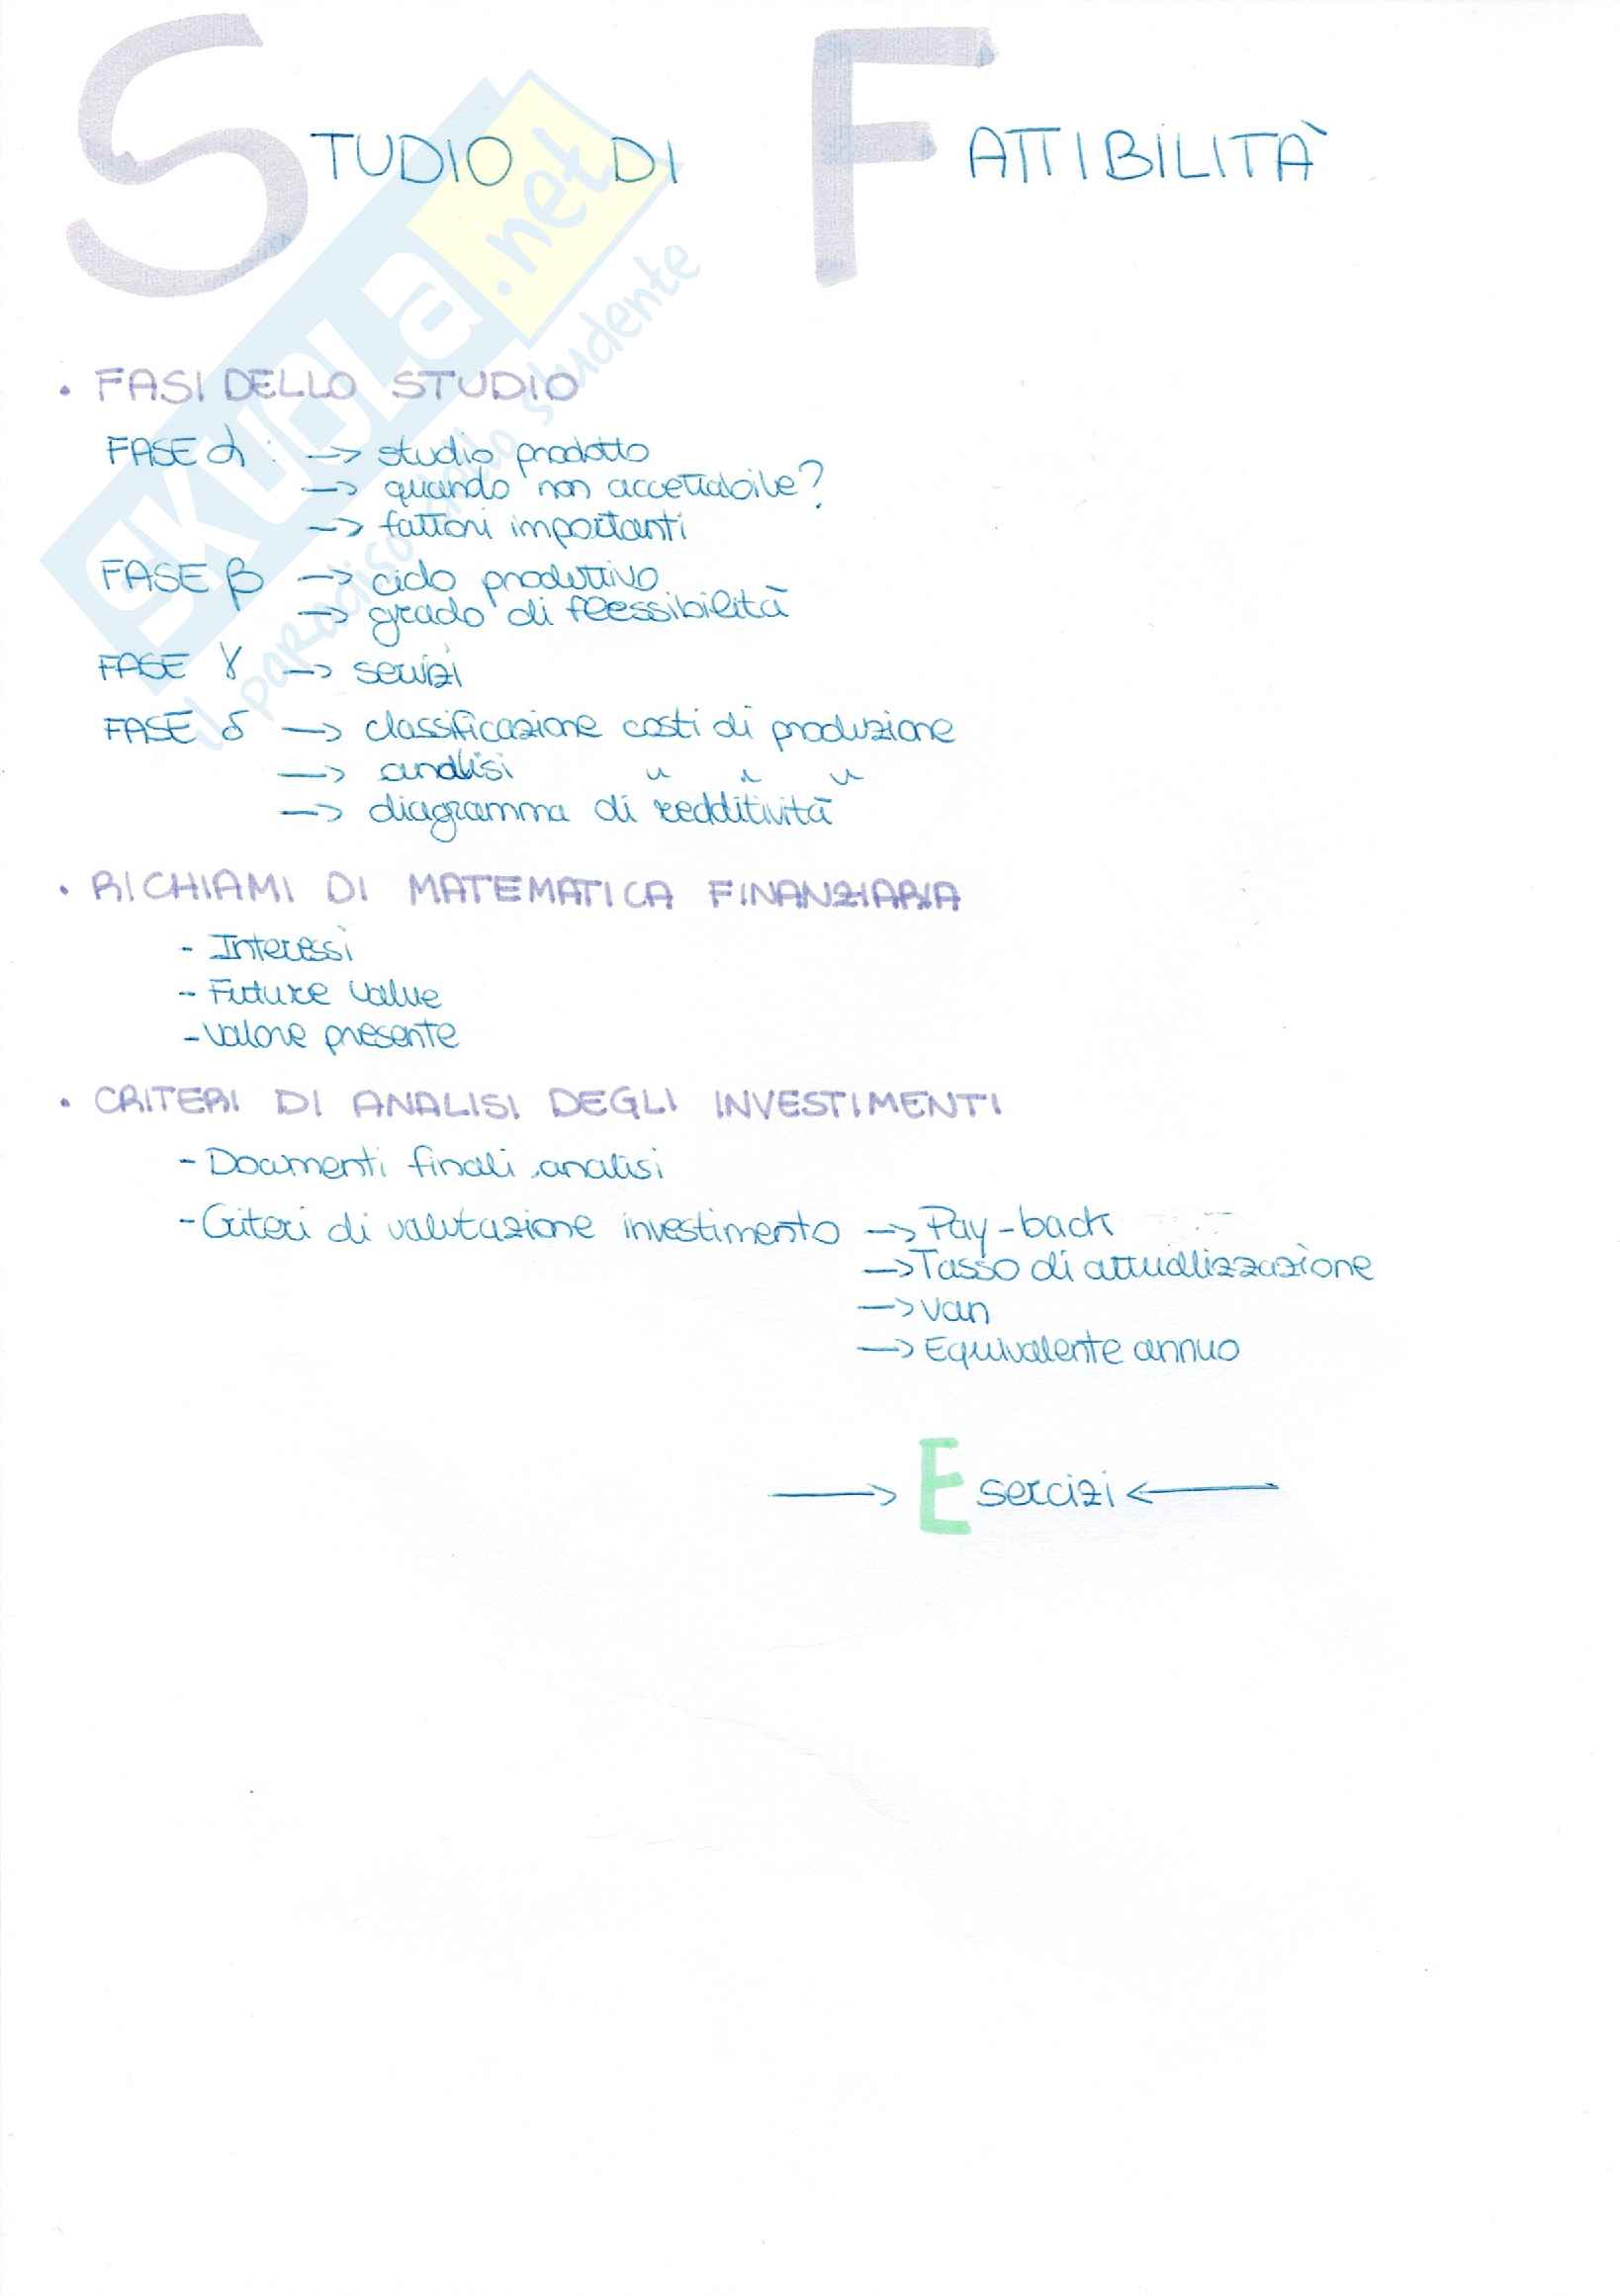 STUDIO DI FATTIBILITÀ
SKUOLA.net
il paradiso dello studente
• FASI DELLO STUDIO
FASE α : —> studio prodotto
—> quando non accettabile?
—> fattori importanti
FASE β —> ciclo produttivo
—> grado di flessibilità
FASE γ —> servizi
FASE δ —> classificazione costi di produzione
—> analisi " " "
—> diagramma di redditività
• RICHIAMI DI MATEMATICA FINANZIARIA
- Interessi
- Future value
- Valore presente
• CRITERI DI ANALISI DEGLI INVESTIMENTI
- Documenti finali analisi
- Criteri di valutazione investimento —> Pay-back
—> Tasso di attualizzazione
—> van
—> Equivalente annuo
—> Esercizi <—